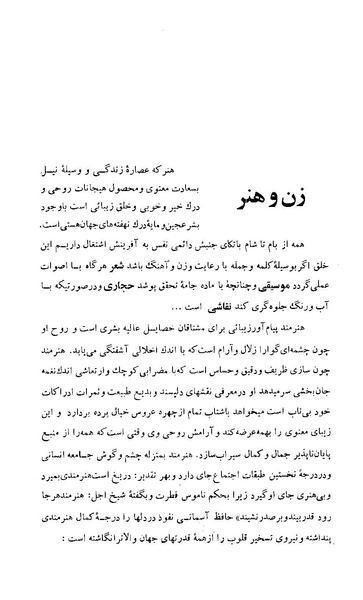 زن و هنر
هنر که عصارهٔ زندگی و وسیلهٔ نیل
بسعادت معنوی و محصول هیجانات روحی و
درک خیر و خوبی و خلق زیبائی است با وجود
بشر عجین و مایهٔ درک نهفته‌های جهان هستی است.
همه از بام تا شام باتکای جنبش دائمی نفس به آفرینش اشتغال داریم این
خلق اگر بوسیلهٔ کلمه و جمله با رعایت وزن و آهنگ باشد شعر هر گاه با اصوات
عملی گردد موسیقی و چنانچه با ماده جامهٔ تحقق پوشد حجاری و در صورتیکه با
آب و رنگ جلوه‌گری کند نقاشی است ...
هنرمند پیام‌آور زیبائی برای مشتاقان خصایل عالیه بشری است و روح او
چون چشمه‌ای گوارا زلال و آرام است که با اندک اخلالی آشفتگی می‌یابد. هنرمند
چون سازی ظریف و دقیق و حساس است که با مضرابی کوچک و ارتعاشی اندک نغمه
جان‌بخشی سر میدهد او در معرفی نقشهای دلپسند و بدیع طبیعت و ثمرات ادراکات
خود بی‌تاب است میخواهد باشتاب تمام از چهره عروس خیال پرده بردارد و این
زیبای معنوی را بهمه عرضه کند و آرامش روحی وی وقتی است که همه را از منبع
پایان‌ناپذیر جمال و کمال سیراب سازد. هنرمند بمنزله چشم و گوش جامعه انسانی
و در درجهٔ نخستین طبقات اجتماع جای دارد و بهر تقدیر: دریغ است هنرمندی بمیرد
و بی‌هنری جای او گیرد زیرا بحکم ناموس فطرت و بگفتهٔ شیخ اجل: هنرمند هر جا
رود قدر بیند و بر صدر نشیند» حافظ آسمانی نفوذ در دلها را درجهٔ کمال هنرمندی
پنداشته و نیروی تسخیر قلوب را از همهٔ قدرتهای جهان والاتر انگاشته است :